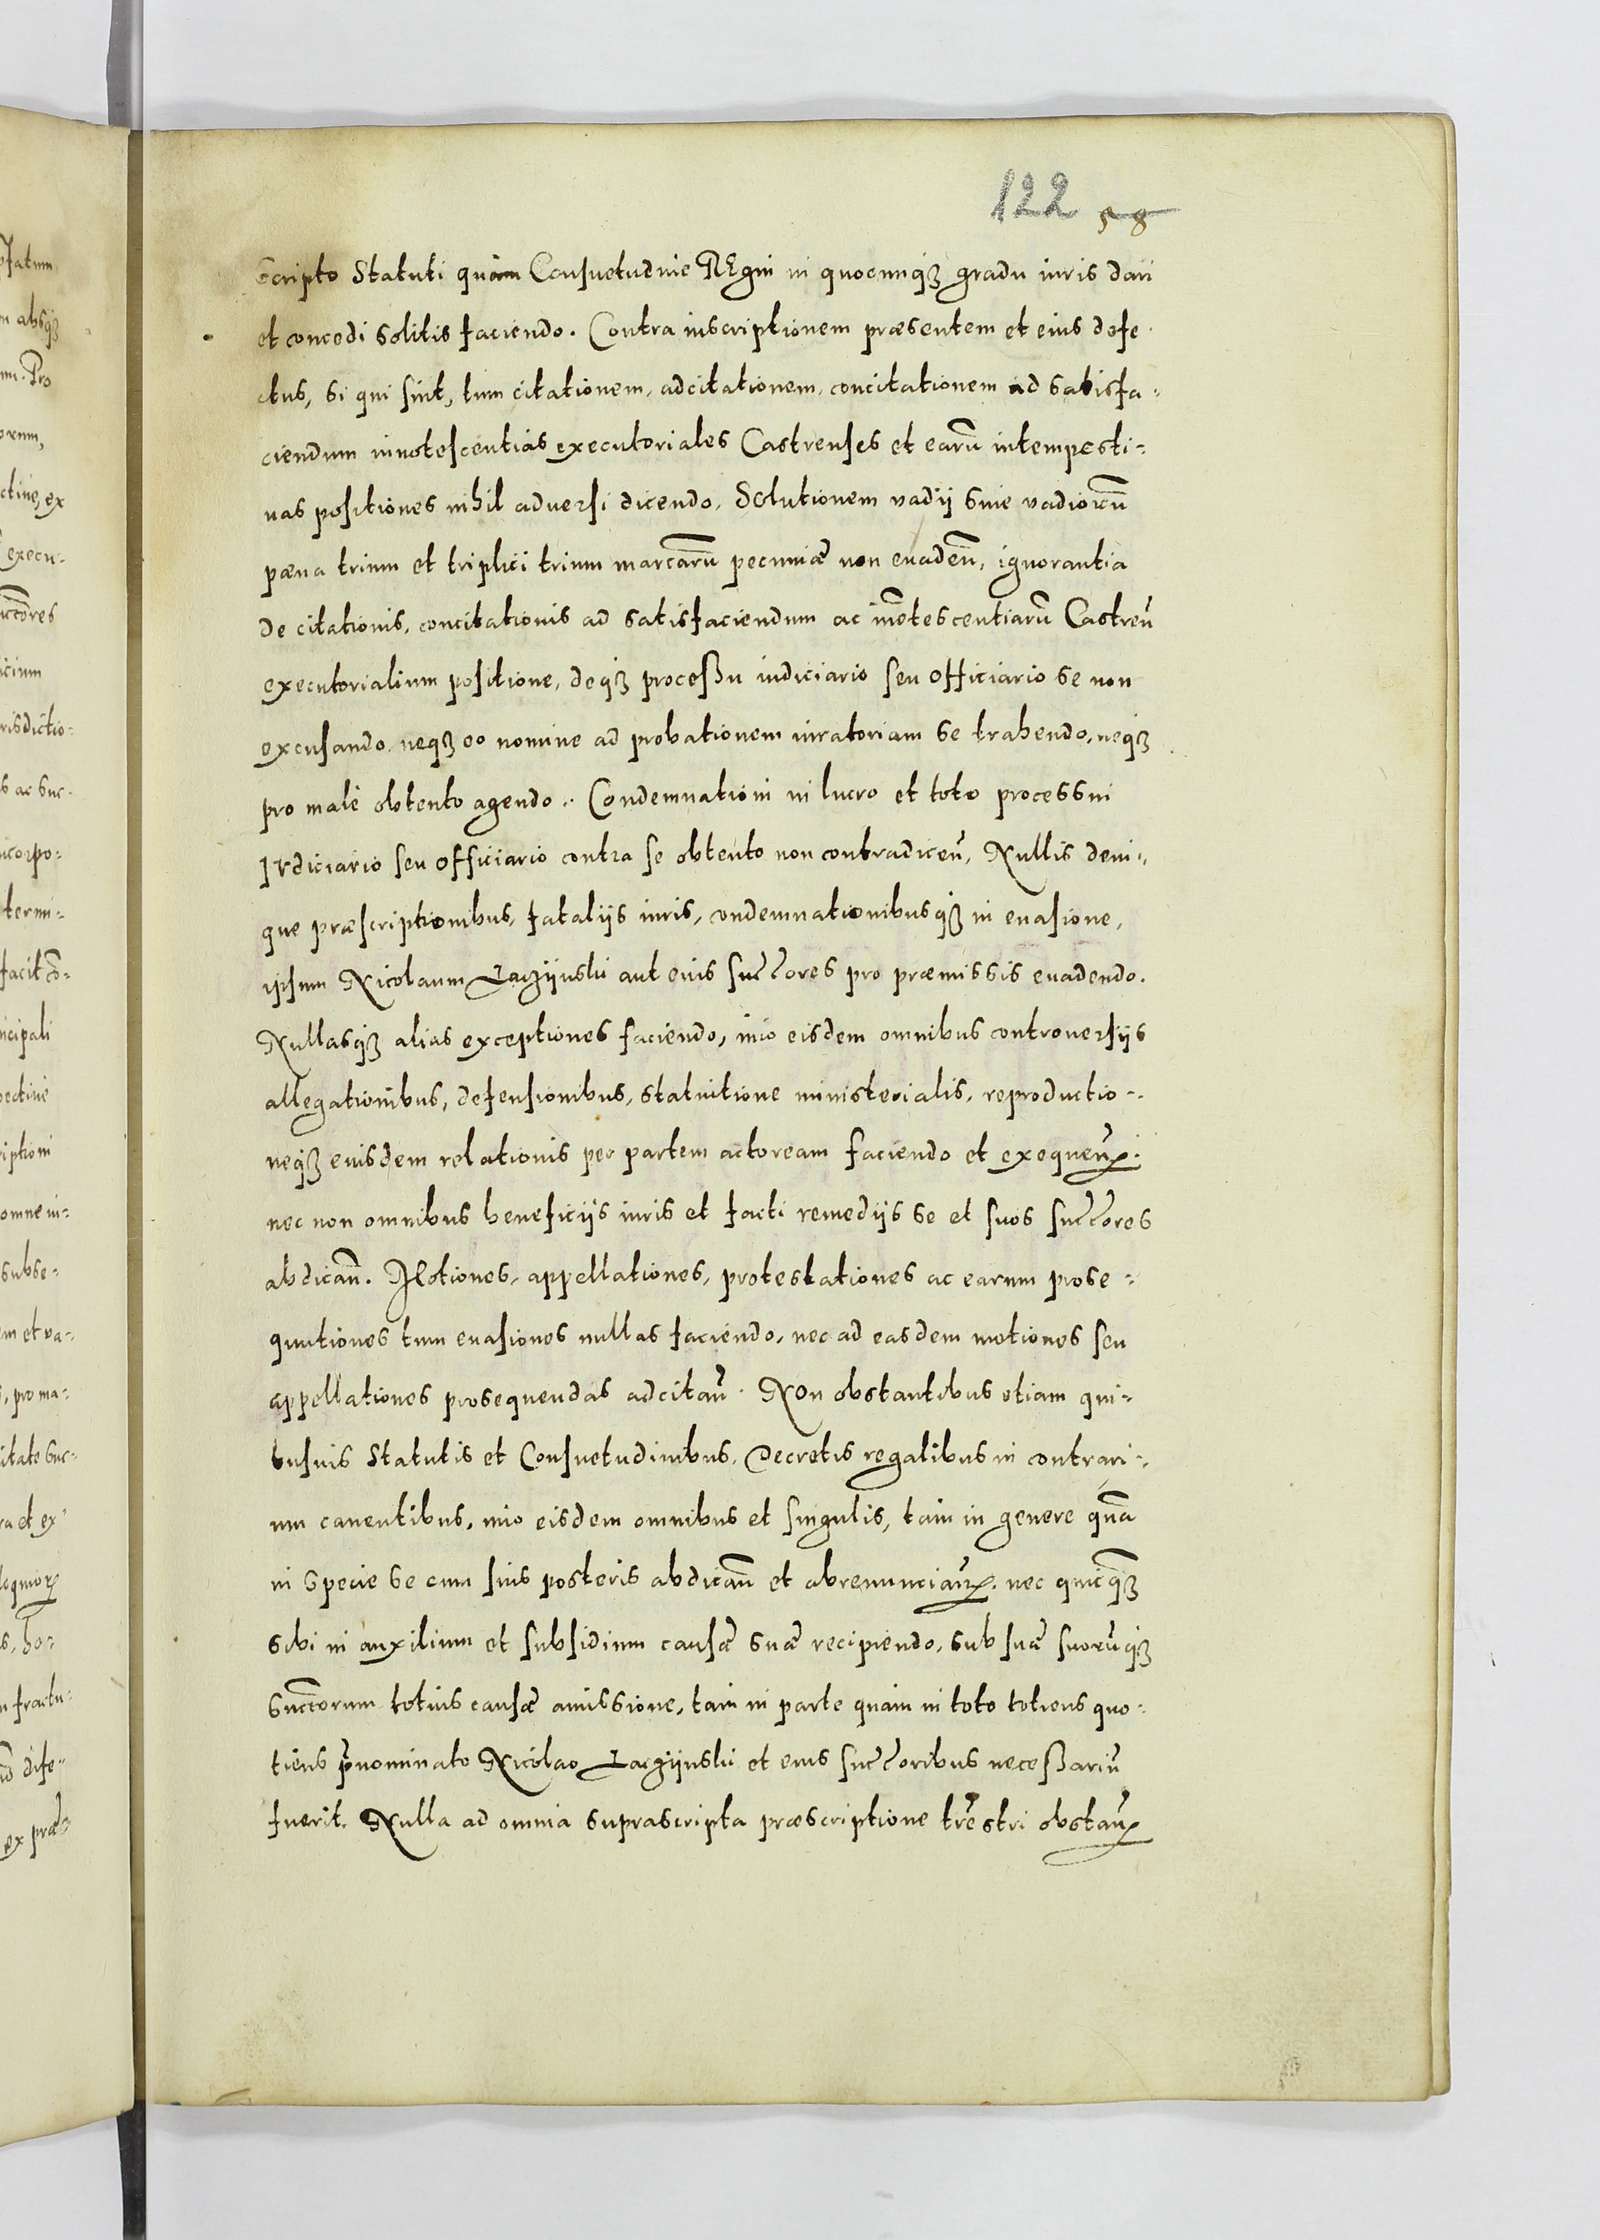 122 58
Scripto Statuti quàm Consuetudine REgni in quocunq3 gradu iuris dari
et concedi solitis faciendo. Contra inscriptionem præsentem et eius defe-
ctus, si qui sint, tum citationem, adcitationem, concitationem ad satisfa-
ciendum innotescentias executoriales Castrenses et earū intempesti-
uas positiones nihil aduersi dicendo, Solutionem vadij siue vadiorū
pæna trium et triplici trium marcarū pecuniæ non euadeñ, ignorantia
de citationis, concitationis ad satisfaciendum ac iñotescentiarū Castreñ
executorialium positione, deq3 processu iudiciario seu officiario se non
excusando, neq3 eo nomine ad probationem iuratoriam se trahendo, neq3
pro malè obtento agendo. Condemnationi in lucro et toto processui
IVdiciario seu officiario contra se obtento non contradiceñ, Nullis deni-
que præscriptionibus, fatalijs iuris, condemnationibusq3 in euasione,
ipsum Nicolaum Łaczijnski aut eius succōres pro præmissis euadendo.
Nullasq3 alias exceptiones faciendo, imò eisdem omnibus controuersijs
allegationibus, defensionibus, statuitione ministerialis, reproductio-
neq3 eiusdem relationis per partem actoream faciendo et exequeñ.
nec non omnibus beneficijs iuris et facti remedijs se et suos succōres
abdicañ. Motiones, appellationes, protestationes ac earum prose-
quutiones tum euasiones nullas faciendo, nec ad easdem motiones seu
appellationes prosequendas adcitañ. NOn obstantibus etiam qui-
busuis Statutis et Consuetudinibus, Decretis regalibus in contrari-
um cauentibus, imò eisdem omnibus et singulis, tam in genere quā
in specie se cum suis posteris abdicañ et abrenunciañ. nec quicq̄3
sibi in auxilium et subsidium causæ suæ recipiendo, sub suæ suorūq3
succōrum totius causæ amissione, tam in parte quàm in toto totiens quo-
tiens p̄nominato Nicolao Łaczijnski et eius succōribus necessariū
fuerit. Nulla ad omnia suprascripta præscriptione tr̄estri obstañ